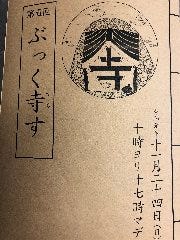 十一月二十四日(日)
十時ヨリ十七時マデ
寺
ぶっく寺す